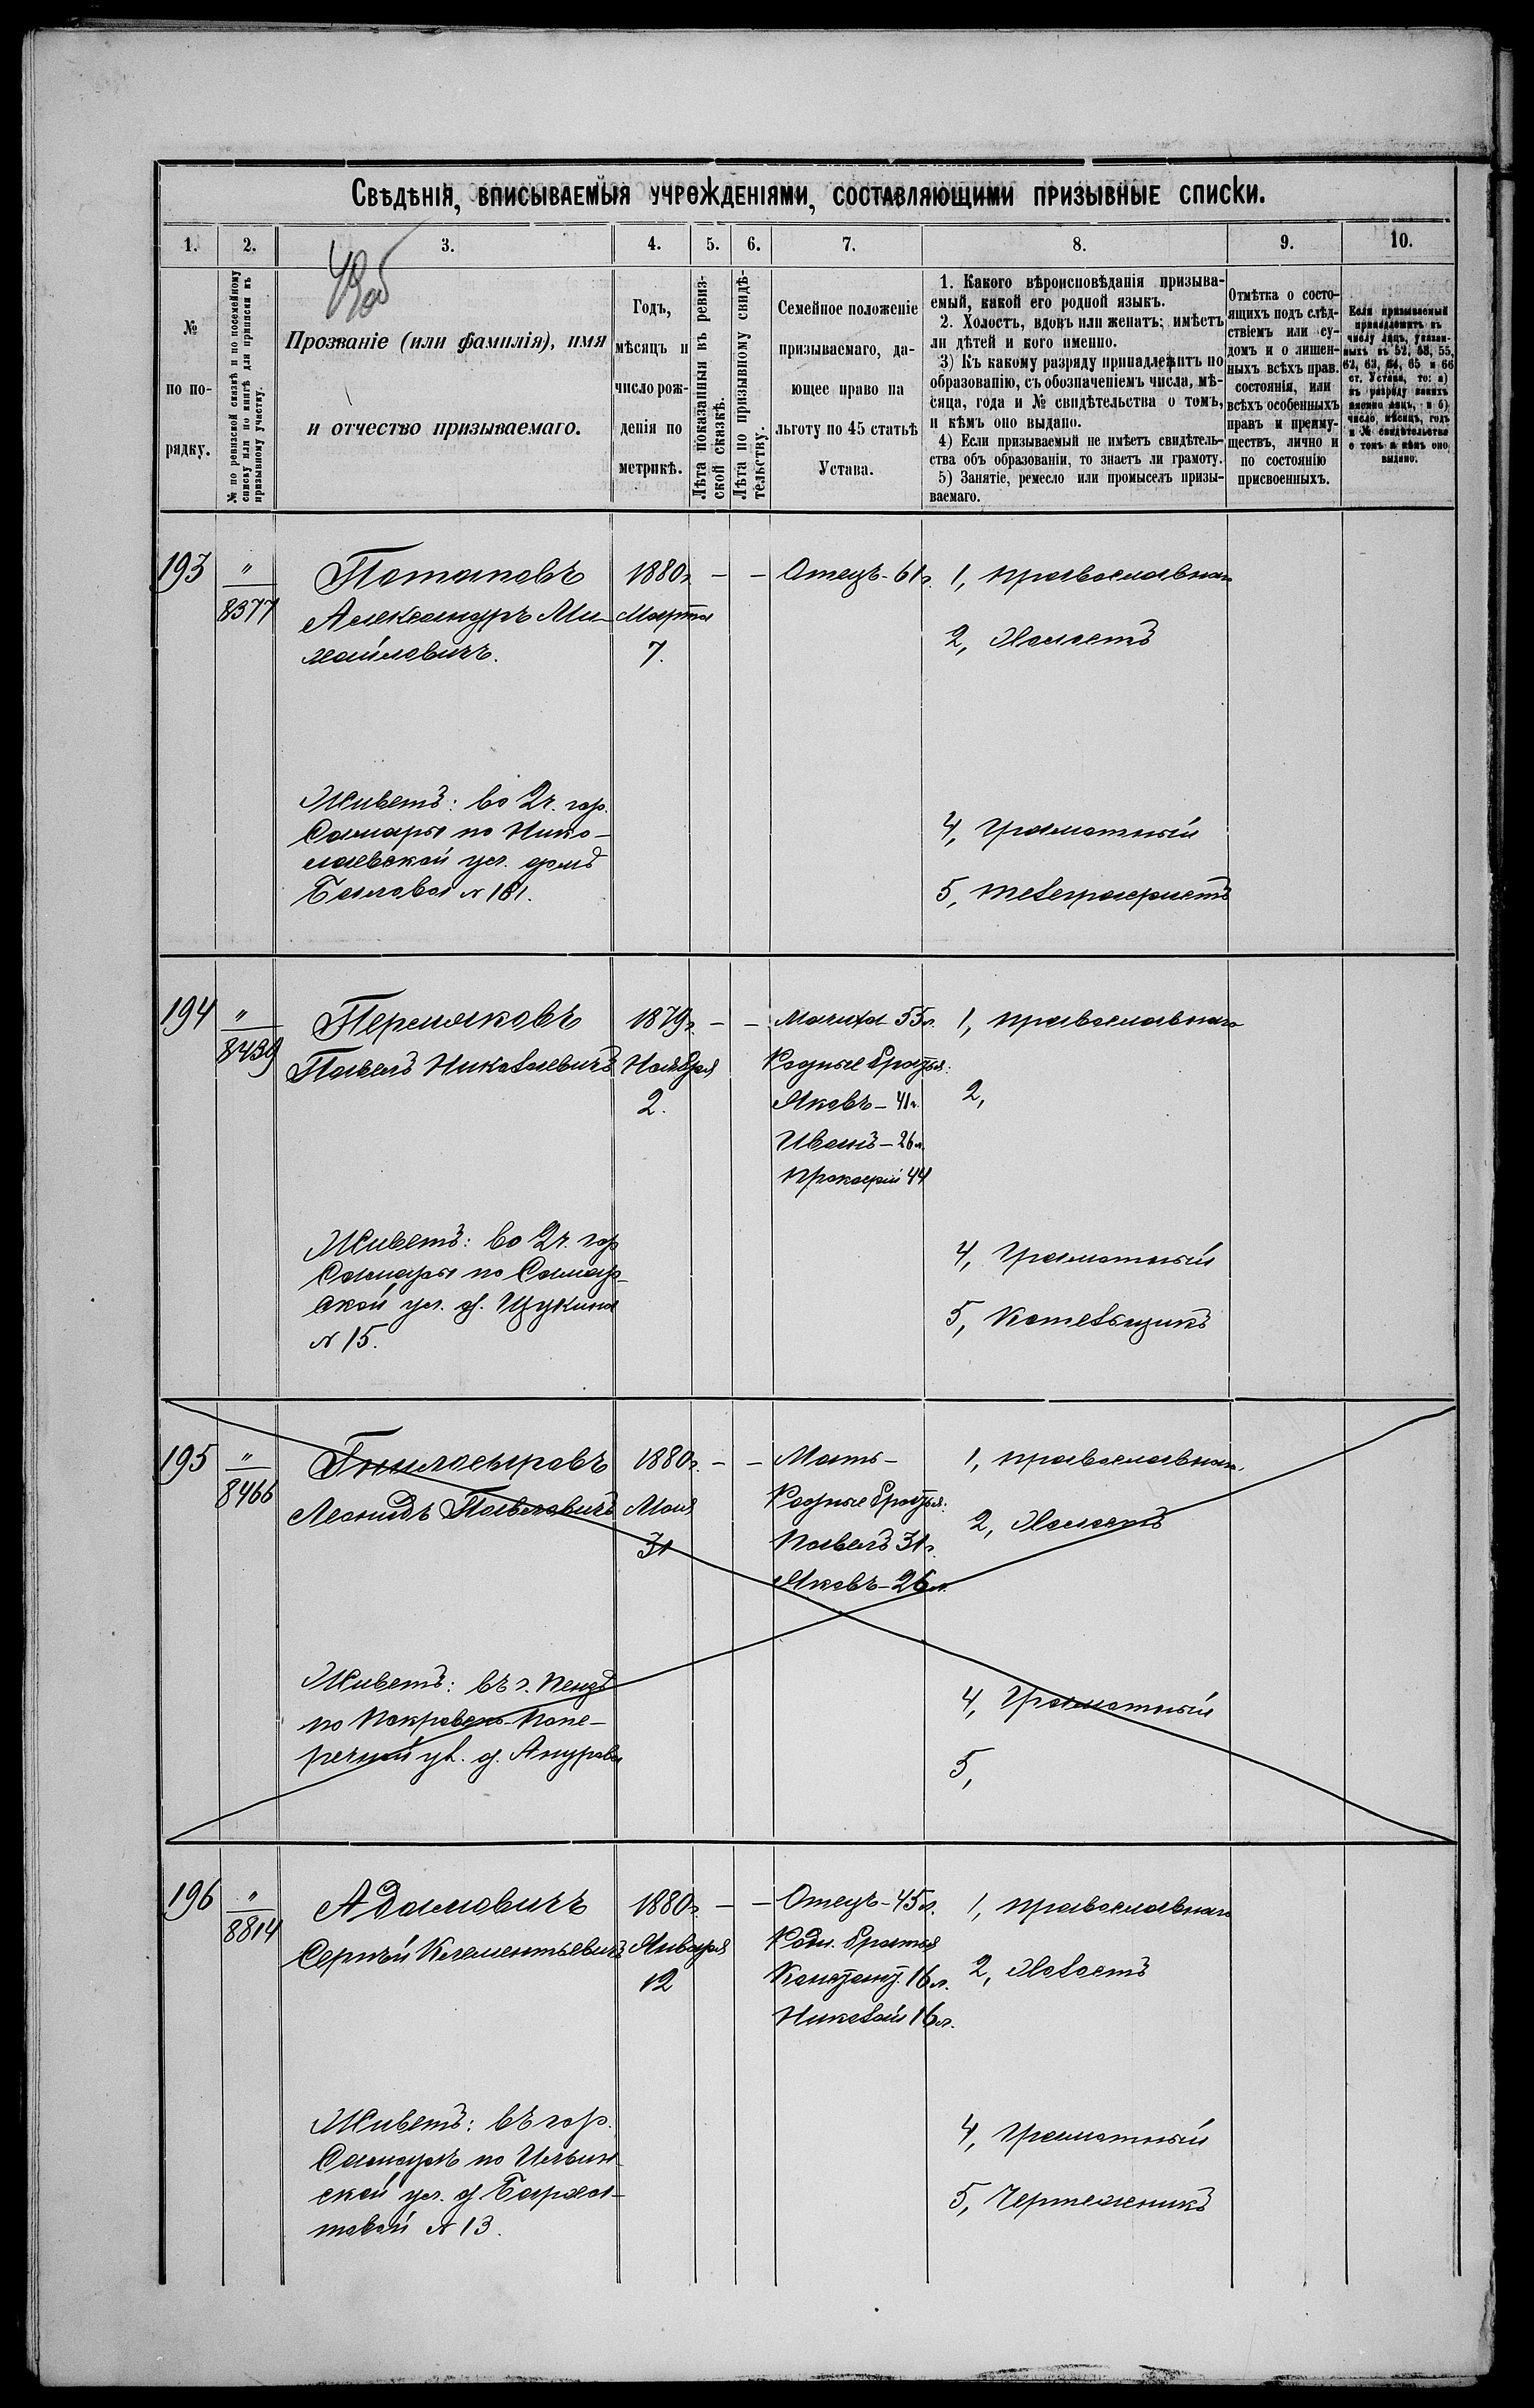 Свѣдѣнія, вписываемыя учрежденіями, составляющими призывные списки.
1. 2. 3. 4. 5. 6. 7. 8. 9. 10.
№
по по-
рядку.
№ по ревизской сказкѣ и по посемейному
списку или по книгѣ для приписки къ
призывному участку.
Прозваніе (или фамилія), имя
и отчество призываемаго.
Годъ,
мѣсяцъ и
число рож-
денія по
метрикѣ.
Лѣта показанныя въ ревиз-
ской сказкѣ.
Лѣта по призывному свидѣ-
тельству.
Семейное положеніе
призываемаго, да-
ющее право на
льготу по 45 статьѣ
Устава.
1. Какого вѣроисповѣданія призыва-
емый, какой его родной языкъ.
2. Холостъ, вдовъ или женатъ; имѣетъ
ли дѣтей и кого именно.
3) Къ какому разряду принадлежитъ по
образованію, съ обозначеніемъ числа, мѣ-
сяца, года и № свидѣтельства о томъ,
и кѣмъ оно выдано.
4) Если призываемый не имѣетъ свидѣтель-
ства объ образованіи, то знаетъ ли грамоту.
5) Занятіе, ремесло или промыселъ призы-
ваемаго.
Отмѣтка о состо-
ящихъ подъ слѣд-
ствіемъ или су-
домъ и о лишен-
ныхъ всѣхъ прав.
состоянія, или
всѣхъ особенныхъ
правъ и преиму-
ществъ, лично и
по состоянію
присвоенныхъ.
Если призываемый
принадлежитъ къ
числу лицъ, указан-
ныхъ въ 52, 53, 55,
62, 63, 64, 65 и 66
ст. Устава, то: а)
къ разряду какихъ
именно лицъ, и б)
число, мѣсяцъ, годъ
и № свидѣтельства
о томъ и кѣмъ оно
выдано.
193 " 8377
Потаповъ
Александръ Ми-
хайловичъ.
1880г. – –
Марта
7.
Отецъ - 61г.
1, православнаго
2, Холостъ
Живетъ: во 2ч. гор.
Самары по Нико-
лаевской ул. домъ
Баслова № 181.
4, Грамотный
5, телеграфистъ
194 " 8439
Пермяковъ
Павелъ Николаевичъ
1879г. – –
Ноября
2.
Мачиха 55л.
Родные братья:
Яковъ – 41г.
Иванъ – 26л.
Прокофій 44
1, православнаго
2,
Живетъ: во 2ч. гор
Самары по Самар-
ской ул. д. Щукина
№ 15.
4, Грамотный
5, Котельщикъ
195 " 8466
Гнилосыровъ
Леонидъ Павловичъ
1880г. – –
Мая
31
Мать –
Родные братья:
Павелъ 31г.
Яковъ – 26л.
1, православнаго.
2, Холостъ
Живетъ: въ г. Пензѣ
по Покровско-Попе-
речной ул. д. Апурова
4, Грамотный
5,
196 " 8814
Адамовичъ
Сергѣй Клементьевичъ
1880г. – –
Января
12
Отецъ - 45л.
Родн. братья
Констант. 16л.
Николай 16л.
1, православнаго
2, Холостъ
Живетъ: въ гор.
Самарѣ по Ильин-
ской ул. д Бархат-
товой № 13.
4, Грамотный
5, Чертежникъ